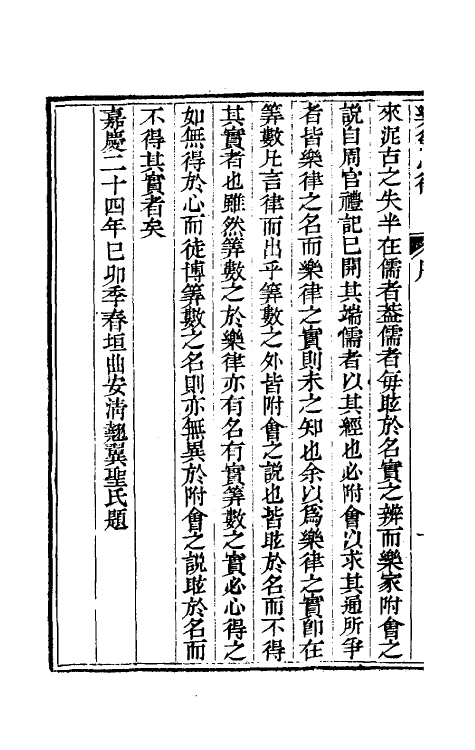 來泥古之失半在儒者葢儒者每眩於名實之辨而樂家附會之
說自周官禮記已開其端儒者以其經也必附會以求其通所爭
者皆樂律之名而樂律之實則未之知也余以爲樂律之實卽在
筭數凡言律而出乎筭數之外皆附會之說也皆眩於名而不得
其實者也雖然筭數之於樂律亦有名有實筭數之實必心得之
如無得於心而徒博筭數之名則亦無異於附會之說眩於名而
不得其實者矣
嘉慶二十四年己卯季春垣曲安淸翹翼聖氏題